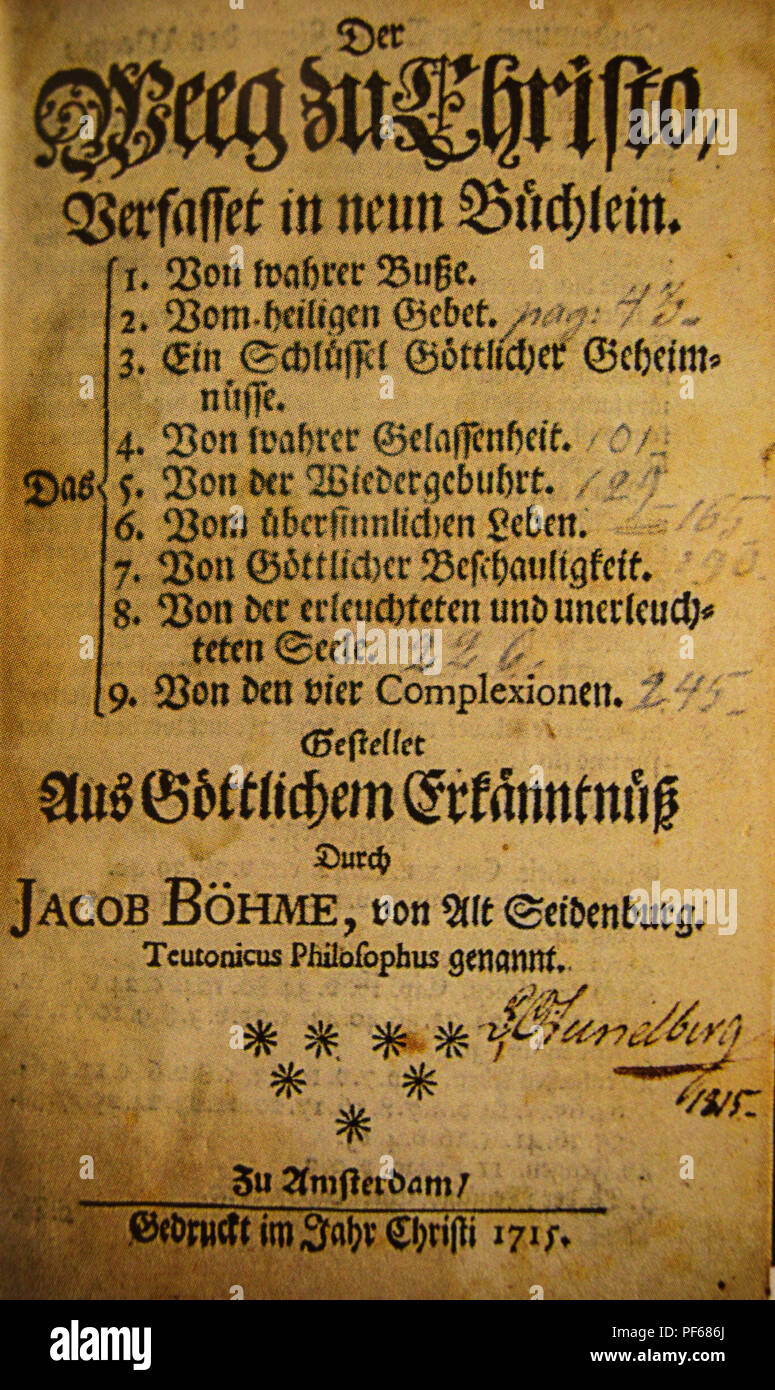 Der
Weeg zu Christo,
Verfasset in neun Büchlein.
1. Von wahrer Buße.
2. Vom heiligen Gebet. pag: 43-
3. Ein Schlüssel Göttlicher Geheim-
nüsse.
4. Von wahrer Gelassenheit. 101-
Das 5. Von der Wiedergebuhrt. 129
6. Vom übersinnlichen Leben. 165
7. Von Göttlicher Beschauligkeit.
8. Von der erleuchteten und unerleuch-
teten Seele. 226.
9. Von den vier Complexionen. 245-
Gestellet
Aus Göttlichem Erkänntnüß
Durch
JACOB BÖHME, von Alt Seidenburg.
Teutonicus Philosophus genannt.
1815-
Zu Amsterdam/
Gedruckt im Jahr Christi 1715.
alamy
Image ID: PF686J
www.alamy.com